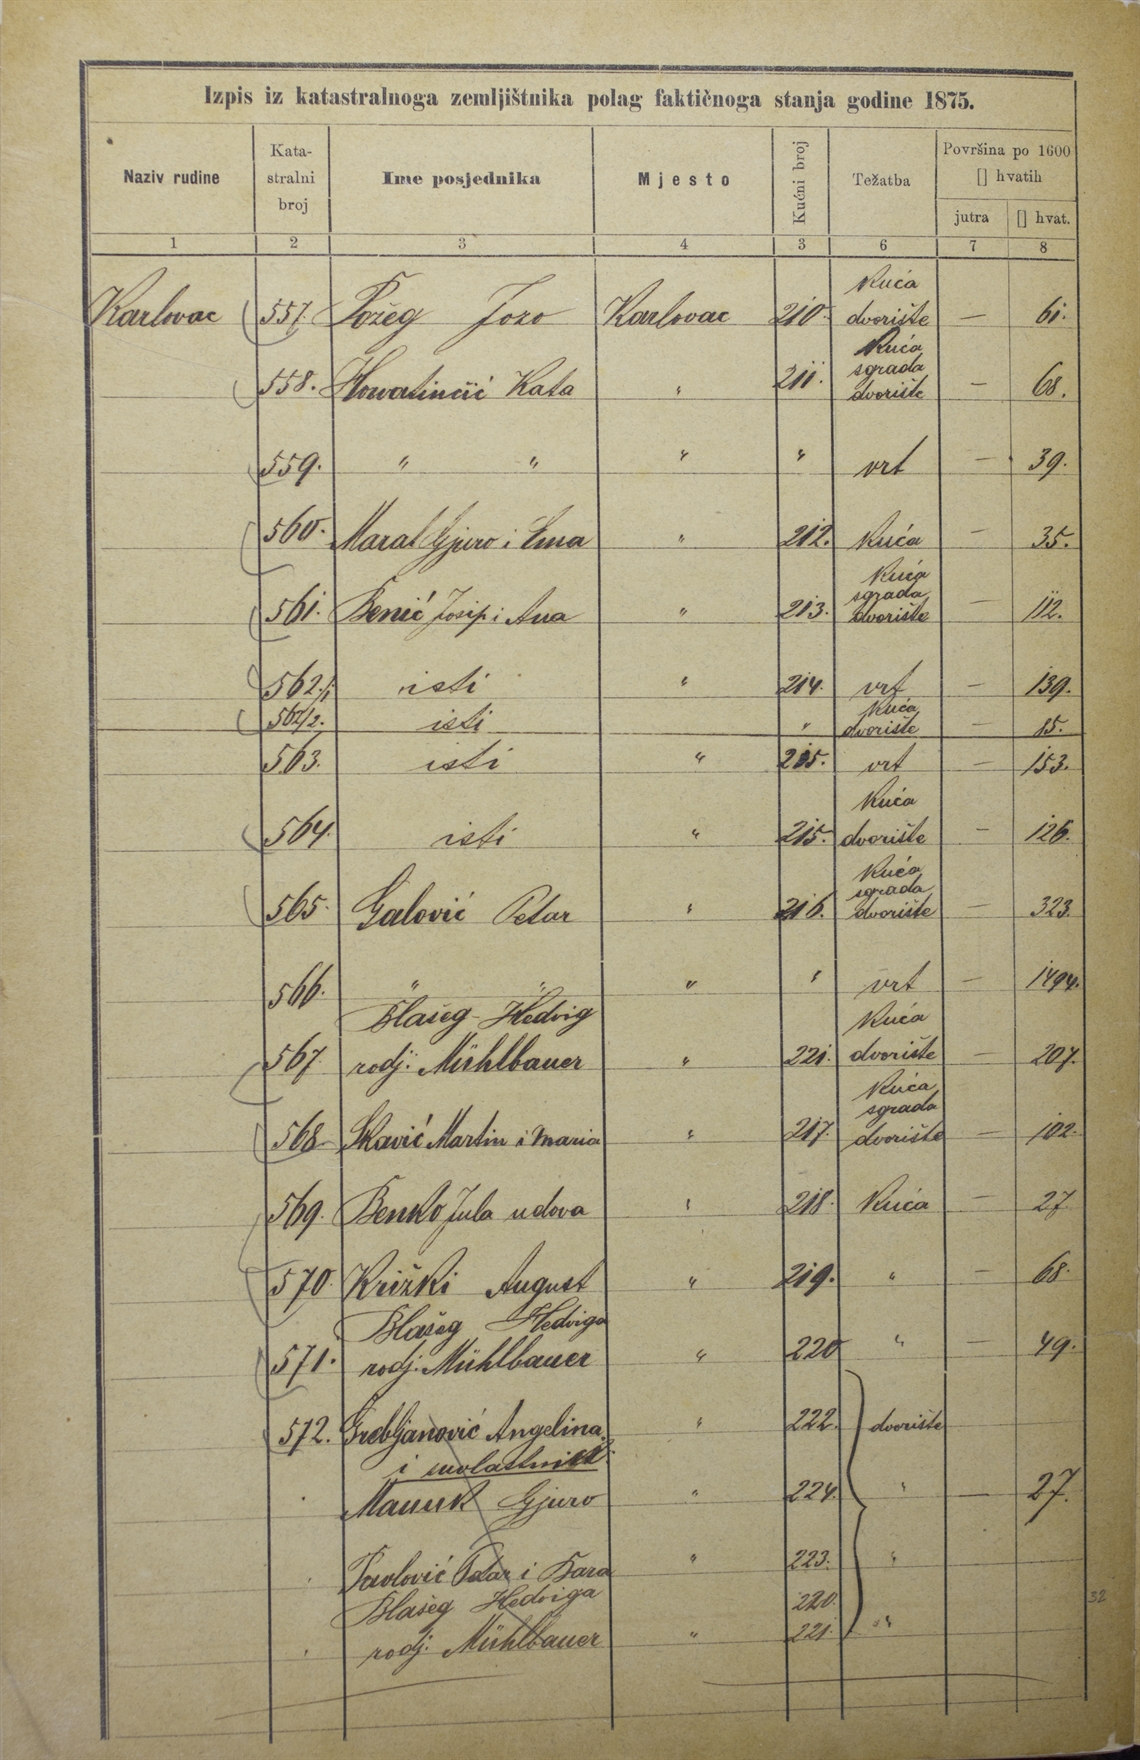 Izpis iz katastralnoga zemljištnika polag faktičnoga stanja godine 1875.
Naziv rudine Kata-stralni broj Ime posjednika Mjesto Kućni broj Težatba Površina po 1600 [] hvatih
jutra [] hvat.
1 2 3 4 3 6 7 8
Kuća
Karlovac 557. Požeg Jozo Karlovac 210. dvorište — 61.
Kuća
sgrada
558. Horvatinčić Kata " 211. dvorište — 68.
559. " " " " vrt — 39.
560. Maral Gjuro i Ema " 212. Kuća — 35.
Kuća
sgrada
561. Benić Josip i Ana " 213. dvorište — 112.
562/1 isti " 214. vrt — 139.
Kuća
562/2. isti " dvorište — 15.
563. isti " 215. vrt — 153.
Kuća
564. isti " 215. dvorište — 126.
Kuća
sgrada
565. Galović Petar " 216. dvorište — 323.
566. " " " " vrt — 1494.
Blašeg Hedvig Kuća
567. rodj: Mühlbauer " 221. dvorište — 207.
Kuća
sgrada
568 Skavić Martin i Maria " 217. dvorište — 102.
569. Benko Jula udova " 218. Kuća — 27
570. Križki August " 219. " — 68.
Blašeg Hedviga
571. rodj. Mühlbauer " 220 " — 49.
572. Grebljanović Angelina " 222. dvorište
i suvlastnici
Mauuk Gjuro " 224. " — 27.
Pavlović Petar i Bara " 223. "
Blašeg Hedviga 220.
rodj. Mühlbauer " 221. "
32